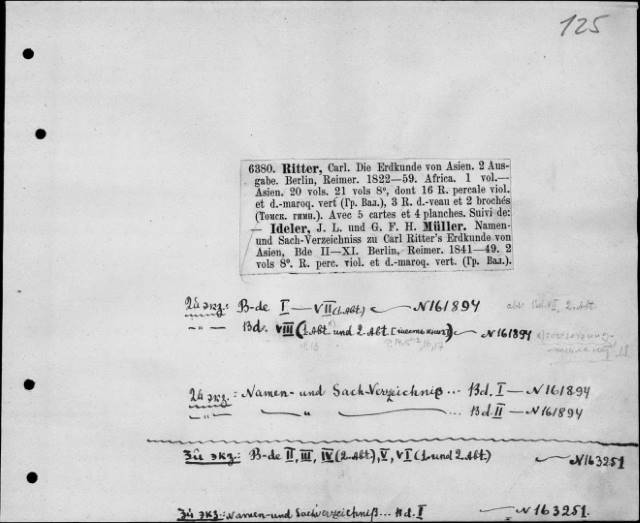 125
6380. Ritter, Carl. Die Erdkunde von Asien. 2 Aus-
gabe. Berlin, Reimer. 1822—59. Africa. 1 vol.—
Asien. 20 vols. 21 vols 8°, dont 16 R. percale viol.
et d.-maroq. vert (Гр. Вал.), 3 R. d.-veau et 2 brochés
(Томск. гимн.). Avec 5 cartes et 4 planches. Suivi de:
— Ideler, J. L. und G. F. H. Müller. Namen-
und Sach-Verzeichniss zu Carl Ritter's Erdkunde von
Asien, Bde II—XI. Berlin, Reimer. 1841—49. 2
vols 8°. R. perc. viol. et d.-maroq. vert. (Гр. Вал.).
2й экз.: B-de I — VII (1.Abt) — N161894
Bd. VIII (1.Abt. und 2.Abt. — N161894
2й экз.: Namen- und Sach-Verzeichniß ... Bd. I — N161894
— " — ... Bd II — N161894
3й экз: B-de II, III, IV (2.Abt), V, VI (1 und 2 Abt.) — N163251
3й экз.: Namen-und Sachverzeichniß... Bd. I — N163251.